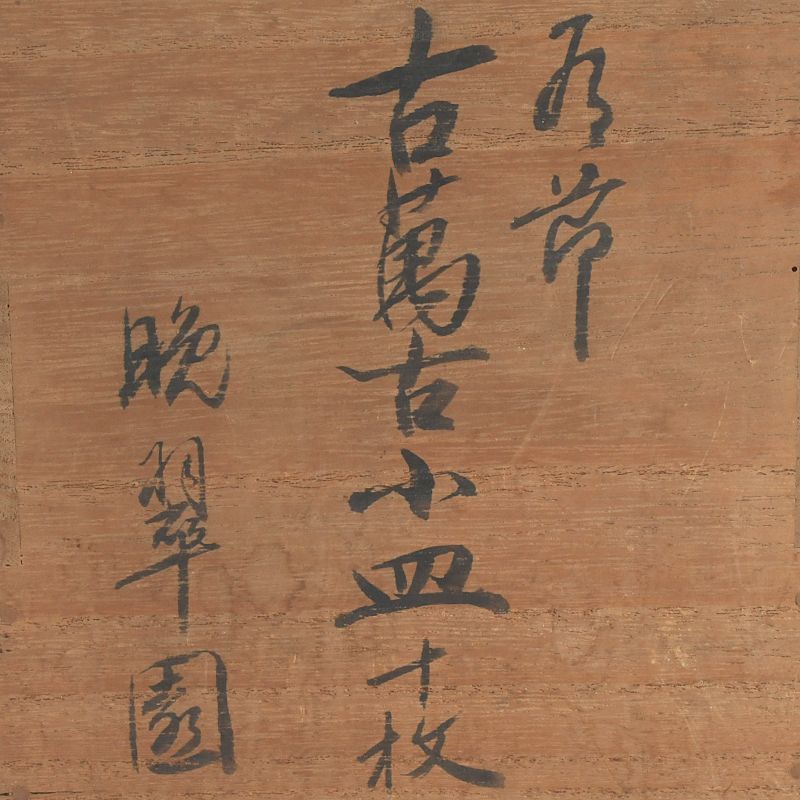 有節
古萬古小皿十枚
晩翠園